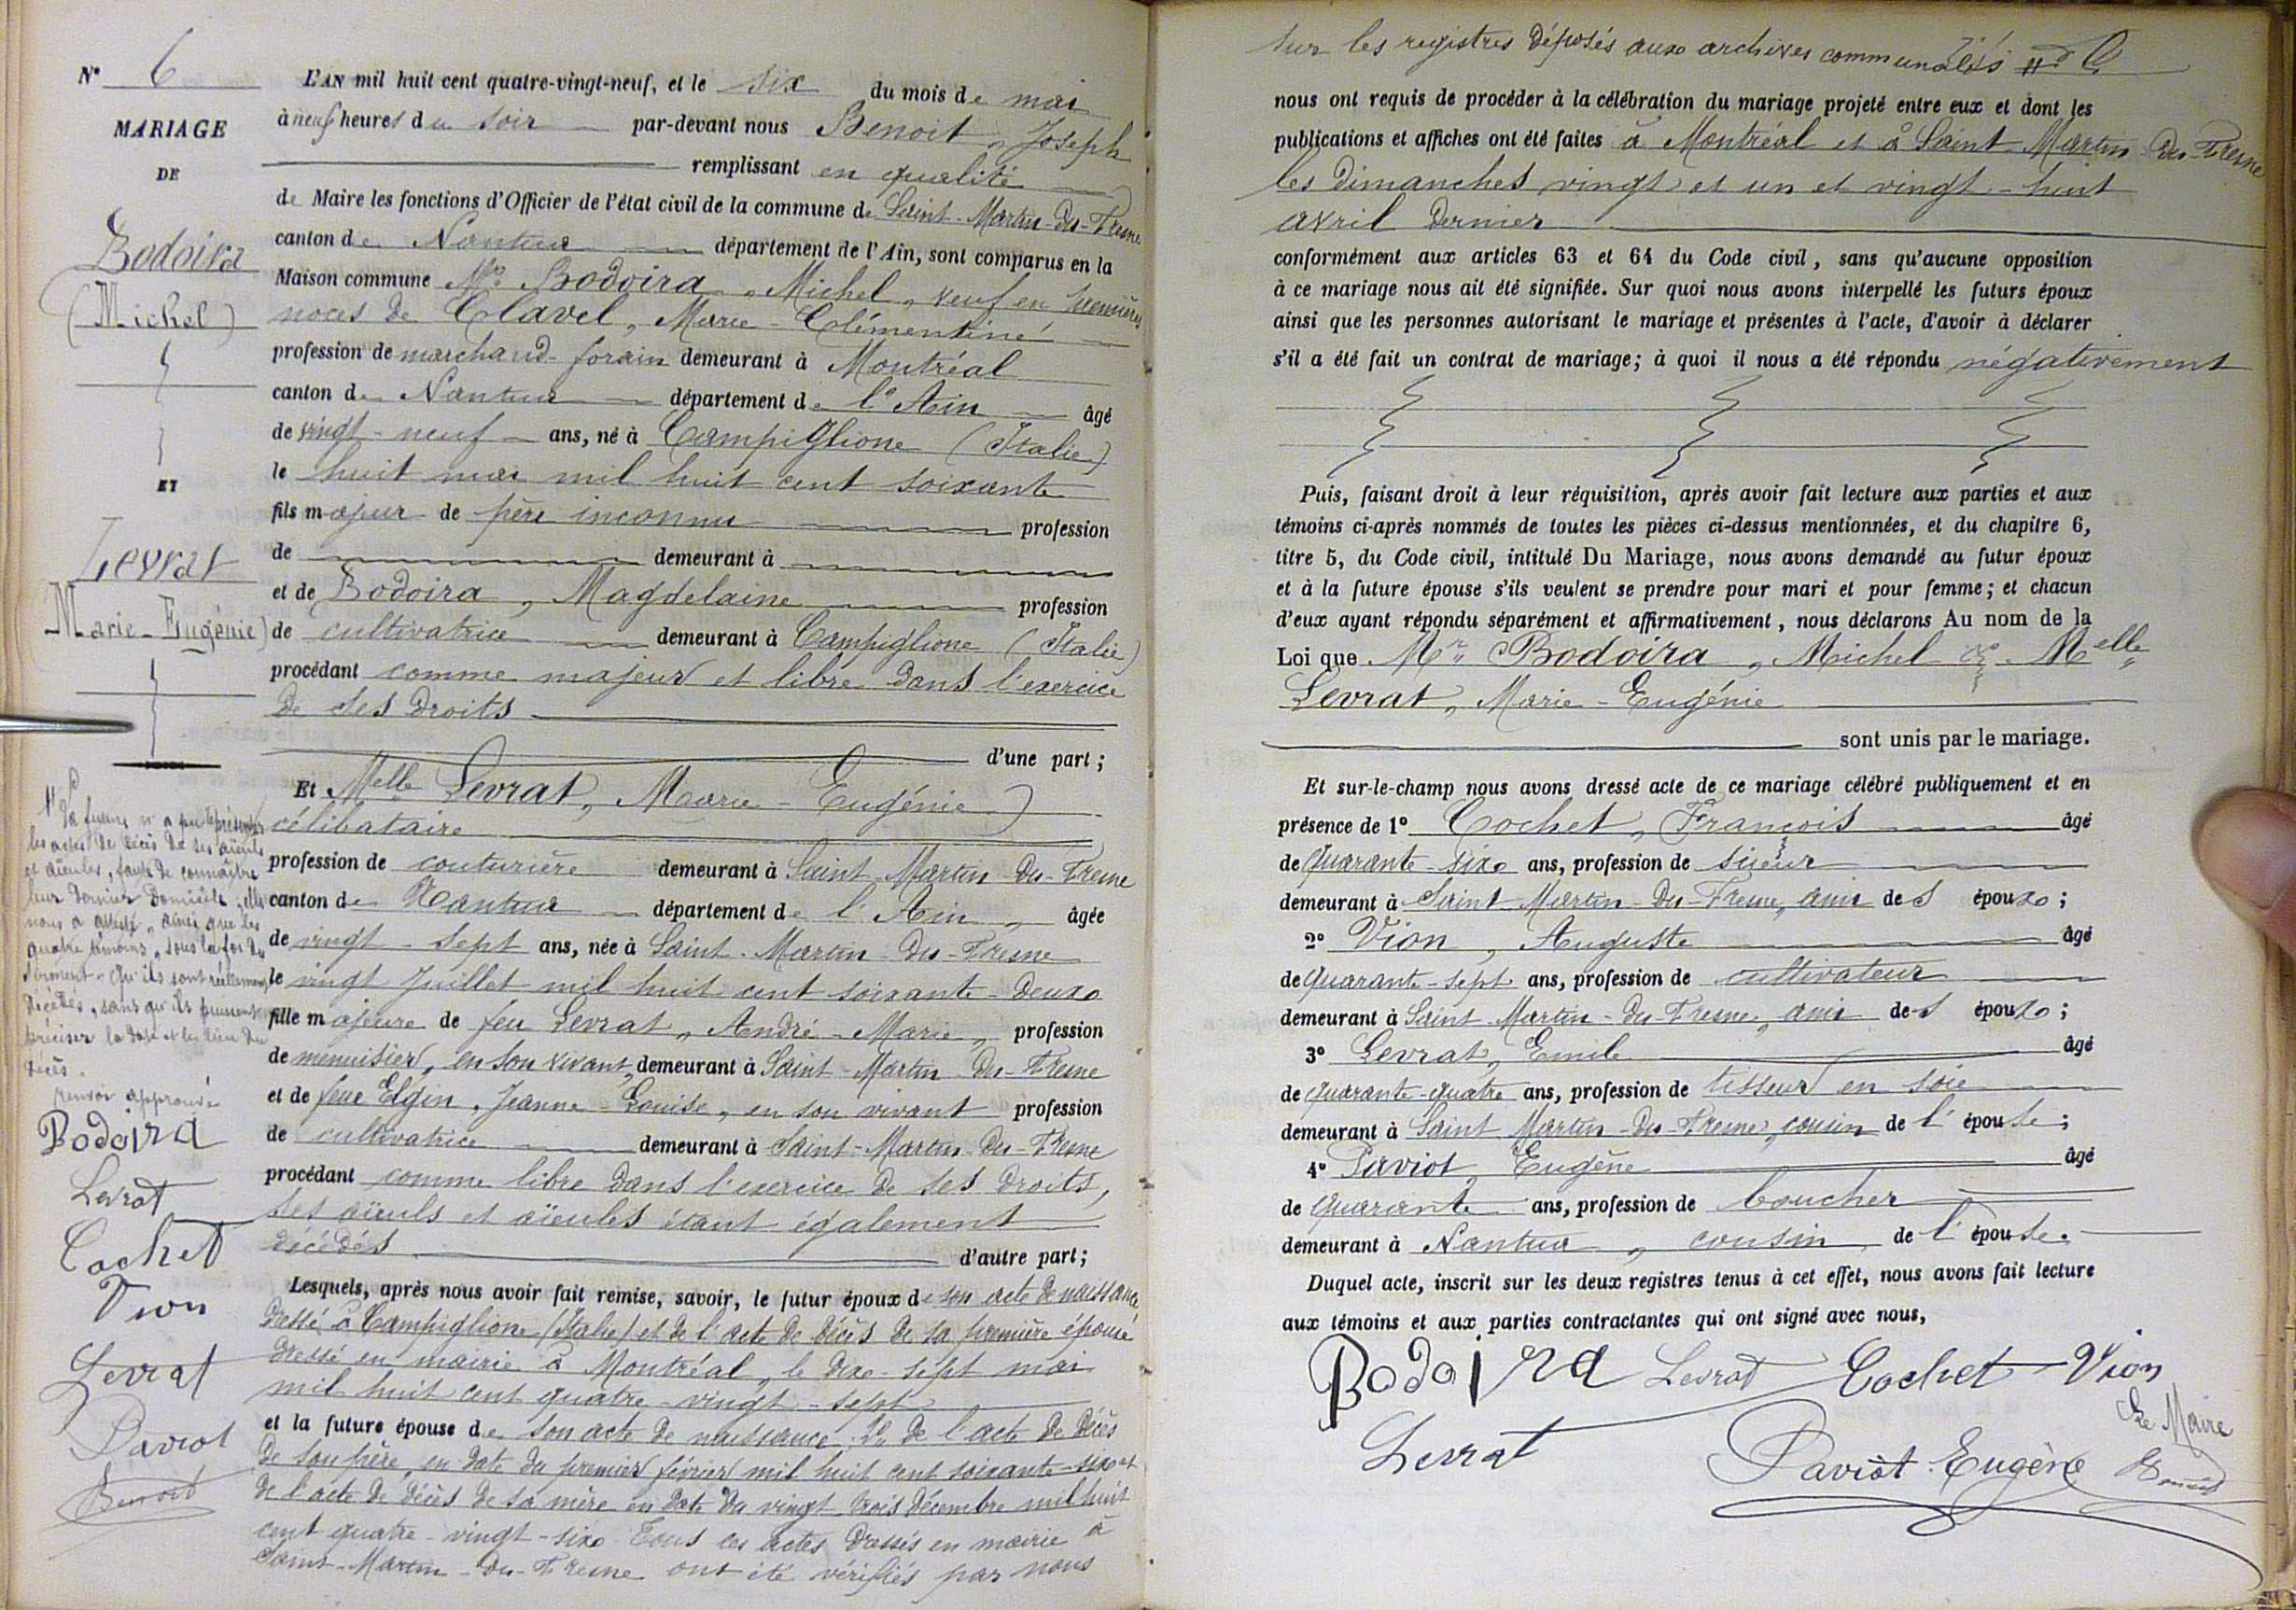 N° 6
MARIAGE
DE
Bodoira
(Michel)
ET
Levrat
(Marie-Eugénie)
La future n'a pu représenter
les actes de décès de ses aïeuls
et aïeules, faute de connaître
leur dernier domicile, elle
nous a attesté, ainsi que les
quatre témoins, sous la foi du
serment, qu'ils sont réellement
décédés, sans qu'ils puissent
préciser la date et le lieu du
décès.
renvoi approuvé
Bodoira
Levrat
Cochet
Vion
Levrat
Paviot
Benoit
L'AN mil huit cent quatre-vingt-neuf, et le six du mois de mai
à neuf heures du soir par-devant nous Benoit, Joseph
remplissant en qualité
de Maire les fonctions d'Officier de l'état civil de la commune de Saint-Martin-du-Fresne
canton de Nantua département de l'Ain, sont comparus en la
Maison commune Mr Bodoira, Michel, veuf en premières
noces de Clavel, Marie-Clémentine
profession de marchand-forain demeurant à Montréal
canton de Nantua département de l'Ain âgé
de vingt-neuf ans, né à Campiglione (Italie)
le huit mai mil huit cent soixante
fils majeur de père inconnu profession
de demeurant à
et de Bodoira, Magdelaine profession
de cultivatrice demeurant à Campiglione (Italie)
procédant comme majeur et libre dans l'exercice
de ses droits
d'une part;
Et Melle Levrat, Marie-Eugénie
célibataire
profession de couturière demeurant à Saint-Martin-du-Fresne
canton de Nantua département de l'Ain, âgée
de vingt-sept ans, née à Saint-Martin-du-Fresne
le vingt juillet mil huit cent soixante-deux
fille majeure de feu Levrat, André-Marie, profession
de menuisier, en son vivant, demeurant à Saint-Martin-du-Fresne
et de feue Elgin, Jeanne-Louise, en son vivant profession
de cultivatrice demeurant à Saint-Martin-du-Fresne
procédant comme libre dans l'exercice de ses droits,
ses aïeuls et aïeules étant également
décédés d'autre part;
Lesquels, après nous avoir fait remise, savoir, le futur époux de son acte de naissance
dressé à Campiglione (Italie) et de l'acte de décès de sa première épouse
dressé en mairie à Montréal, le dix-sept mai
mil huit cent quatre-vingt-sept
et la future épouse de son acte de naissance, 2° de l'acte de décès
de son père, en date du premier février mil huit cent soixante-six et
de l'acte de décès de sa mère en date du vingt-trois décembre mil huit
cent quatre-vingt-six. Tous ces actes dressés en mairie à
Saint-Martin-du-Fresne ont été vérifiés par nous
sur les registres déposés aux archives communales
nous ont requis de procéder à la célébration du mariage projeté entre eux et dont les
publications et affiches ont été faites à Montréal et à Saint-Martin-du-Fresne
les dimanches vingt et un et vingt-huit
avril dernier
conformément aux articles 63 et 64 du Code civil, sans qu'aucune opposition
à ce mariage nous ait été signifiée. Sur quoi nous avons interpellé les futurs époux
ainsi que les personnes autorisant le mariage et présentes à l'acte, d'avoir à déclarer
s'il a été fait un contrat de mariage; à quoi il nous a été répondu négativement
Puis, faisant droit à leur réquisition, après avoir fait lecture aux parties et aux
témoins ci-après nommés de toutes les pièces ci-dessus mentionnées, et du chapitre 6,
titre 5, du Code civil, intitulé Du Mariage, nous avons demandé au futur époux
et à la future épouse s'ils veulent se prendre pour mari et pour femme; et chacun
d'eux ayant répondu séparément et affirmativement, nous déclarons Au nom de la
Loi que Mr Bodoira, Michel & Melle
Levrat, Marie-Eugénie
sont unis par le mariage.
Et sur-le-champ nous avons dressé acte de ce mariage célébré publiquement et en
présence de 1° Cochet, François âgé
de quarante-six ans, profession de scieur
demeurant à Saint-Martin-du-Fresne, ami des époux;
2° Vion, Auguste âgé
de quarante-sept ans, profession de cultivateur
demeurant à Saint-Martin-du-Fresne, ami des époux;
3° Levrat, Emile âgé
de quarante-quatre ans, profession de tisseur en soie
demeurant à Saint-Martin-du-Fresne, cousin de l'épouse;
4° Paviot, Eugène âgé
de quarante ans, profession de boucher
demeurant à Nantua, cousin de l'épouse.
Duquel acte, inscrit sur les deux registres tenus à cet effet, nous avons fait lecture
aux témoins et aux parties contractantes qui ont signé avec nous,
Bodoira Levrat Cochet Vion
Le Maire
Levrat Paviot Eugène Benoit